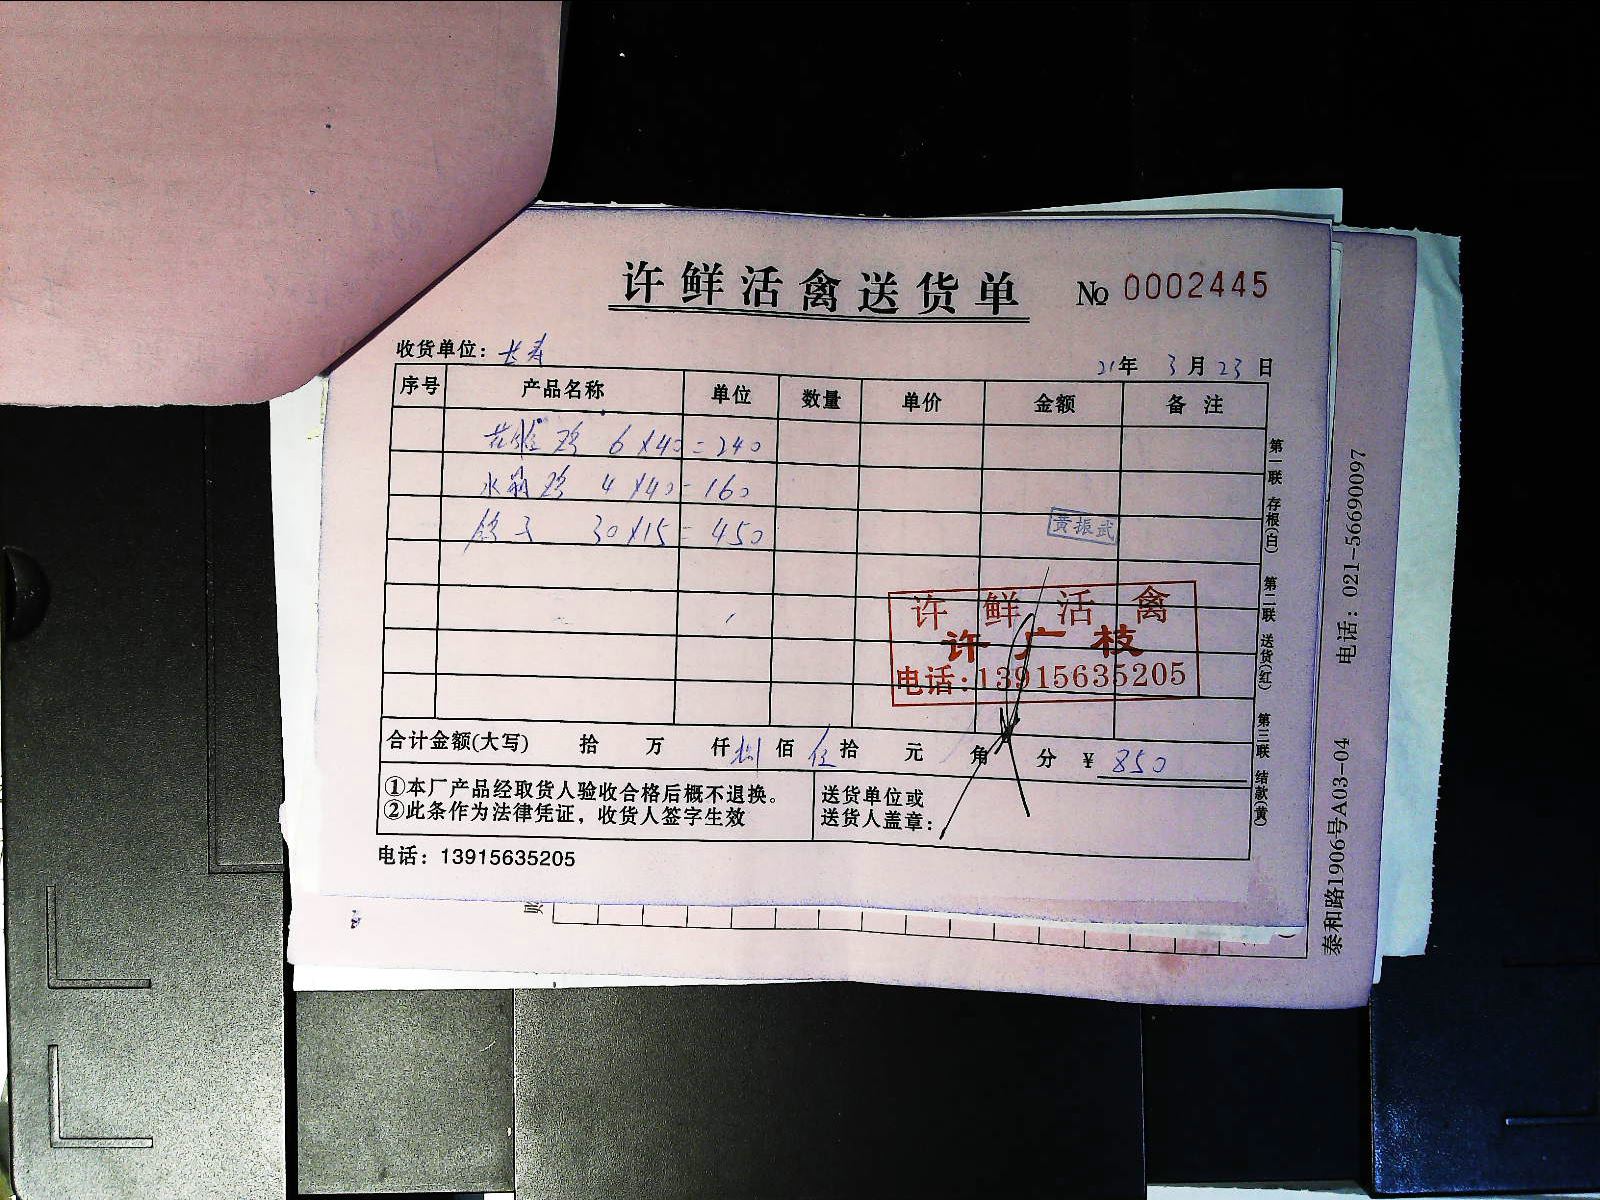 许鲜活禽送货单 № 0002445
收货单位：长寿
21年 3月23日
序号 产品名称 单位 数量 单价 金额 备注
鸡 6×40=240
鸡 4×40=160
鸽子 30×15=450
黄振武
许鲜活禽
许广枝
电话:13915635205
合计金额(大写) 拾 万 仟 捌佰 伍拾 元 角 分 ￥850
①本厂产品经取货人验收合格后概不退换。
②此条作为法律凭证，收货人签字生效
送货单位或
送货人盖章：
电话：13915635205
第一联 存根(白) 第二联 送货(红) 第三联 结款(黄)
泰和路1906号A03-04 电话：021-56690097